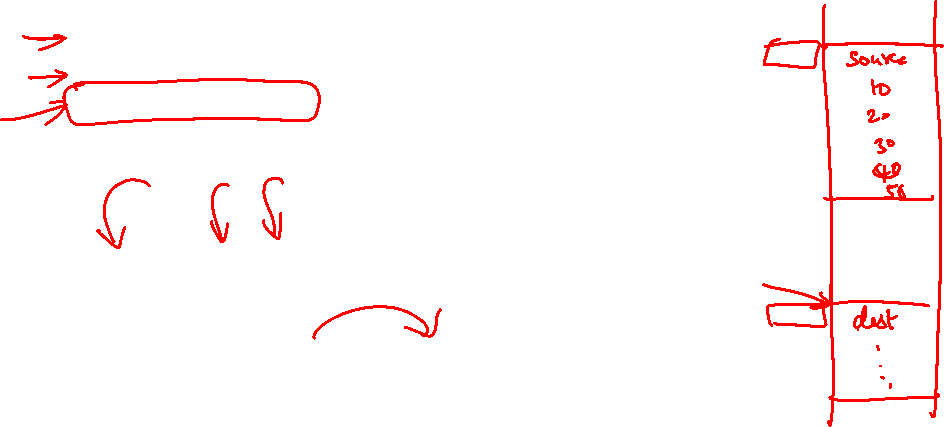 source
10
20
30
40
50
dest